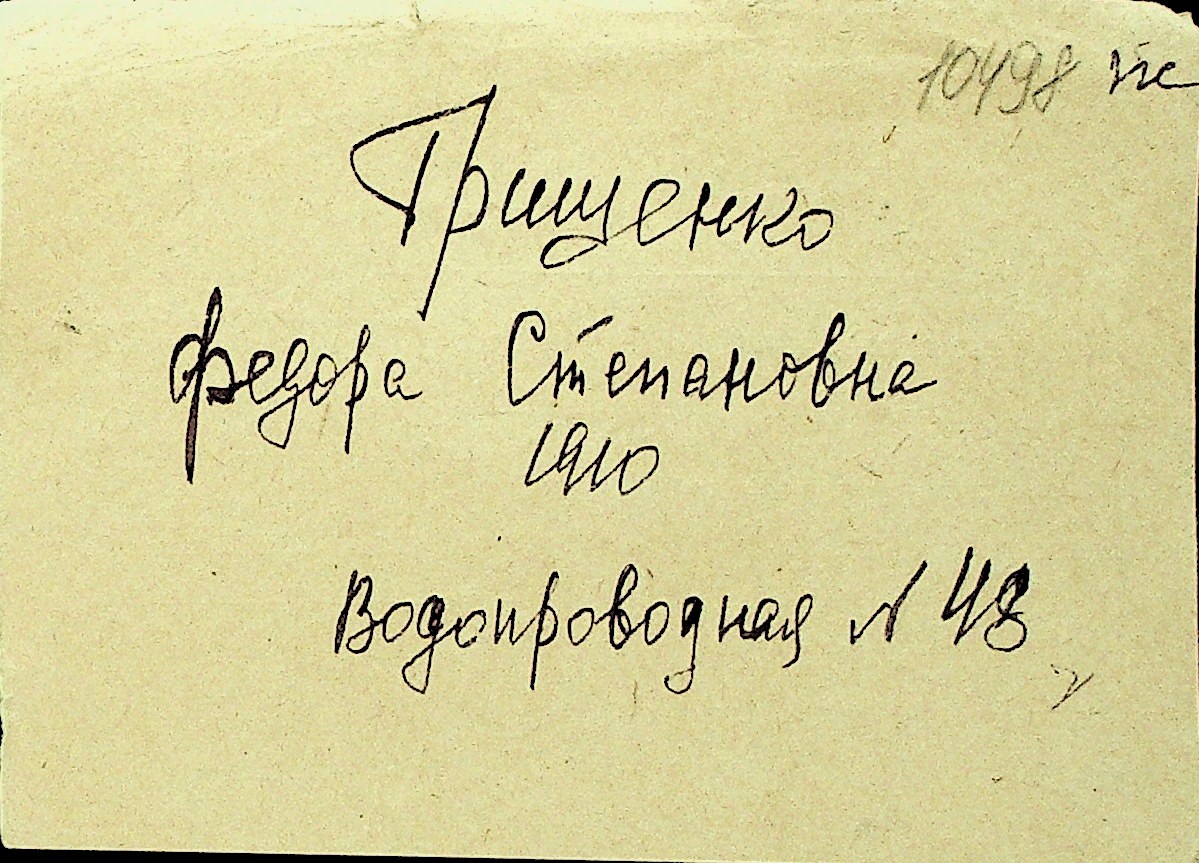 10498 пс
Грищенко
Федора Степановна
1910
Водопроводная N 48